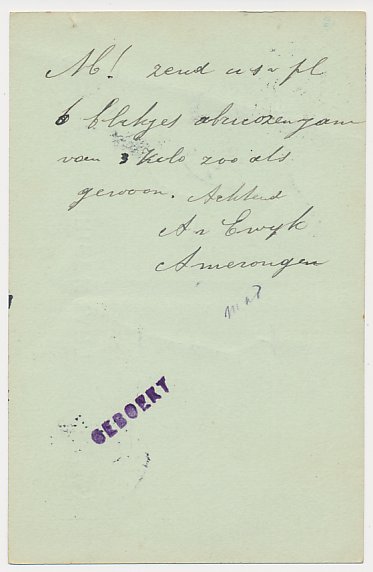 M! zend u s v pl
6 blikjes abricozenjam
van 3 kilo zoo als
gewoon. Achtend
A v Ewyk
Amerongen
GEBOEKT